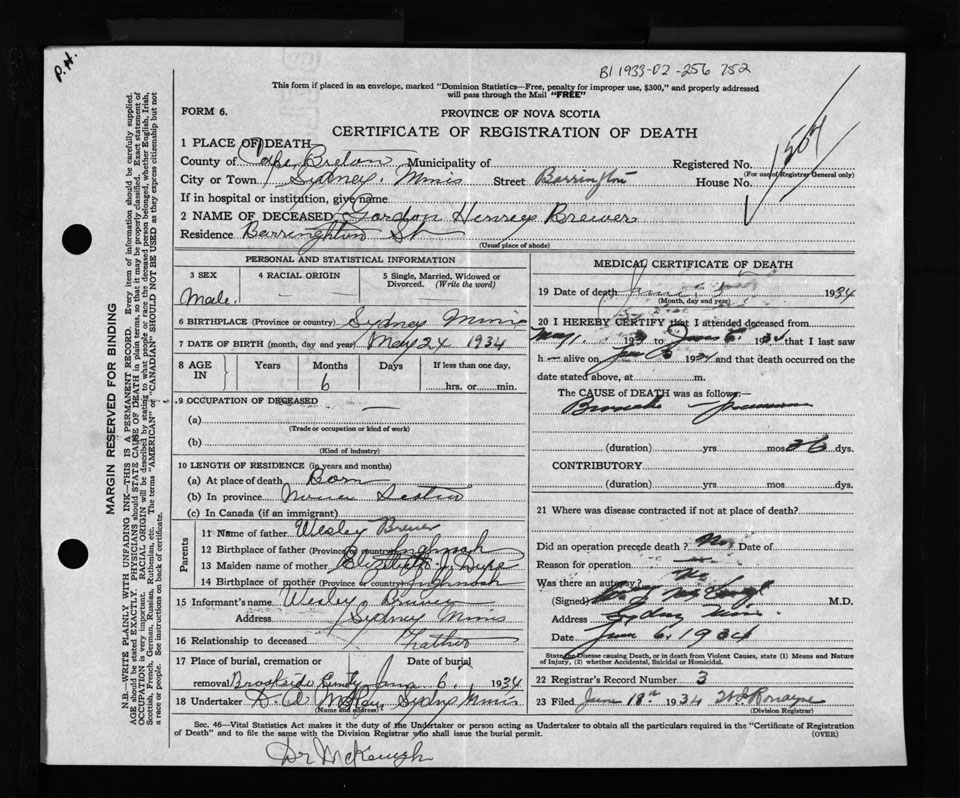 P.H.
B1 1933-02-256 752
This form if placed in an envelope, marked "Dominion Statistics—Free, penalty for improper use, $300," and properly addressed
will pass through the Mail "FREE"
FORM 6.
PROVINCE OF NOVA SCOTIA
CERTIFICATE OF REGISTRATION OF DEATH
1 PLACE OF DEATH
County of Cape Breton Municipality of Registered No.
(For use of Registrar General only)
City or Town Sydney Mines Street Barrington House No.
If in hospital or institution, give name
2 NAME OF DECEASED Gordon Henrey Brewer
Residence Barrington St
(Usual place of abode)
PERSONAL AND STATISTICAL INFORMATION
3 SEX 4 RACIAL ORIGIN 5 Single, Married, Widowed or Divorced. (Write the word)
Male. — —
6 BIRTHPLACE (Province or country) Sydney Mines
7 DATE OF BIRTH (month, day and year) May 24 1934
8 AGE IN Years Months Days If less than one day,
6 hrs. or min.
9 OCCUPATION OF DECEASED —
(a)
(Trade or occupation or kind of work)
(b)
(Kind of industry)
10 LENGTH OF RESIDENCE (in years and months)
(a) At place of death Born
(b) In province Nova Scotia
(c) In Canada (if an immigrant)
Parents
11 Name of father Wesley Brewer
12 Birthplace of father (Province or country)
13 Maiden name of mother Elizabeth J
14 Birthplace of mother (Province or country)
15 Informant's name Wesley Brewer
Address Sydney Mines
16 Relationship to deceased Father
17 Place of burial, cremation or Date of burial
removal Brookside June 6, 1934
18 Undertaker Sydney Mines
(Name and address)
MEDICAL CERTIFICATE OF DEATH
19 Date of death June 5 1934
(Month, day and year)
20 I HEREBY CERTIFY that I attended deceased from
May 193 to June 5 1934 that I last saw
h — alive on June 1934 and that death occurred on
date stated above, at m.
The CAUSE of DEATH was as follows:—
Pneumonia
(duration) yrs mos 26 dys.
CONTRIBUTORY
(duration) yrs mos dys.
21 Where was disease contracted if not at place of death?
Did an operation precede death? No Date of
Reason for operation —
Was there an autopsy? No
(Signed) M.D.
Address Sydney Mines
Date June 6, 1934
State the Disease causing Death, or in death from Violent Causes, state (1) Means and Nature
of Injury, (2) whether Accidental, Suicidal or Homicidal.
22 Registrar's Record Number 3
23 Filed June 18th 1934
(Division Registrar)
Sec. 46—Vital Statistics Act makes it the duty of the Undertaker or person acting as Undertaker to obtain all the particulars required in the "Certificate of Registration
of Death" and to file the same with the Division Registrar who shall issue the burial permit.
(OVER)
Dr McKeough
MARGIN RESERVED FOR BINDING
N.B.—WRITE PLAINLY WITH UNFADING INK—THIS IS A PERMANENT RECORD. Every item of information should be carefully supplied.
AGE should be stated EXACTLY. PHYSICIANS should STATE CAUSE OF DEATH in plain terms, so that it may be properly classified. Exact statement of
OCCUPATION is very important. RACIAL ORIGIN will be described by stating to what people or race the deceased person belonged, whether English, Irish,
Scottish, French, German, Russian, Ruthenian, etc. The terms "AMERICAN" or "CANADIAN" SHOULD NOT BE USED as they express citizenship but not
a race or people. See instructions on back of certificate.